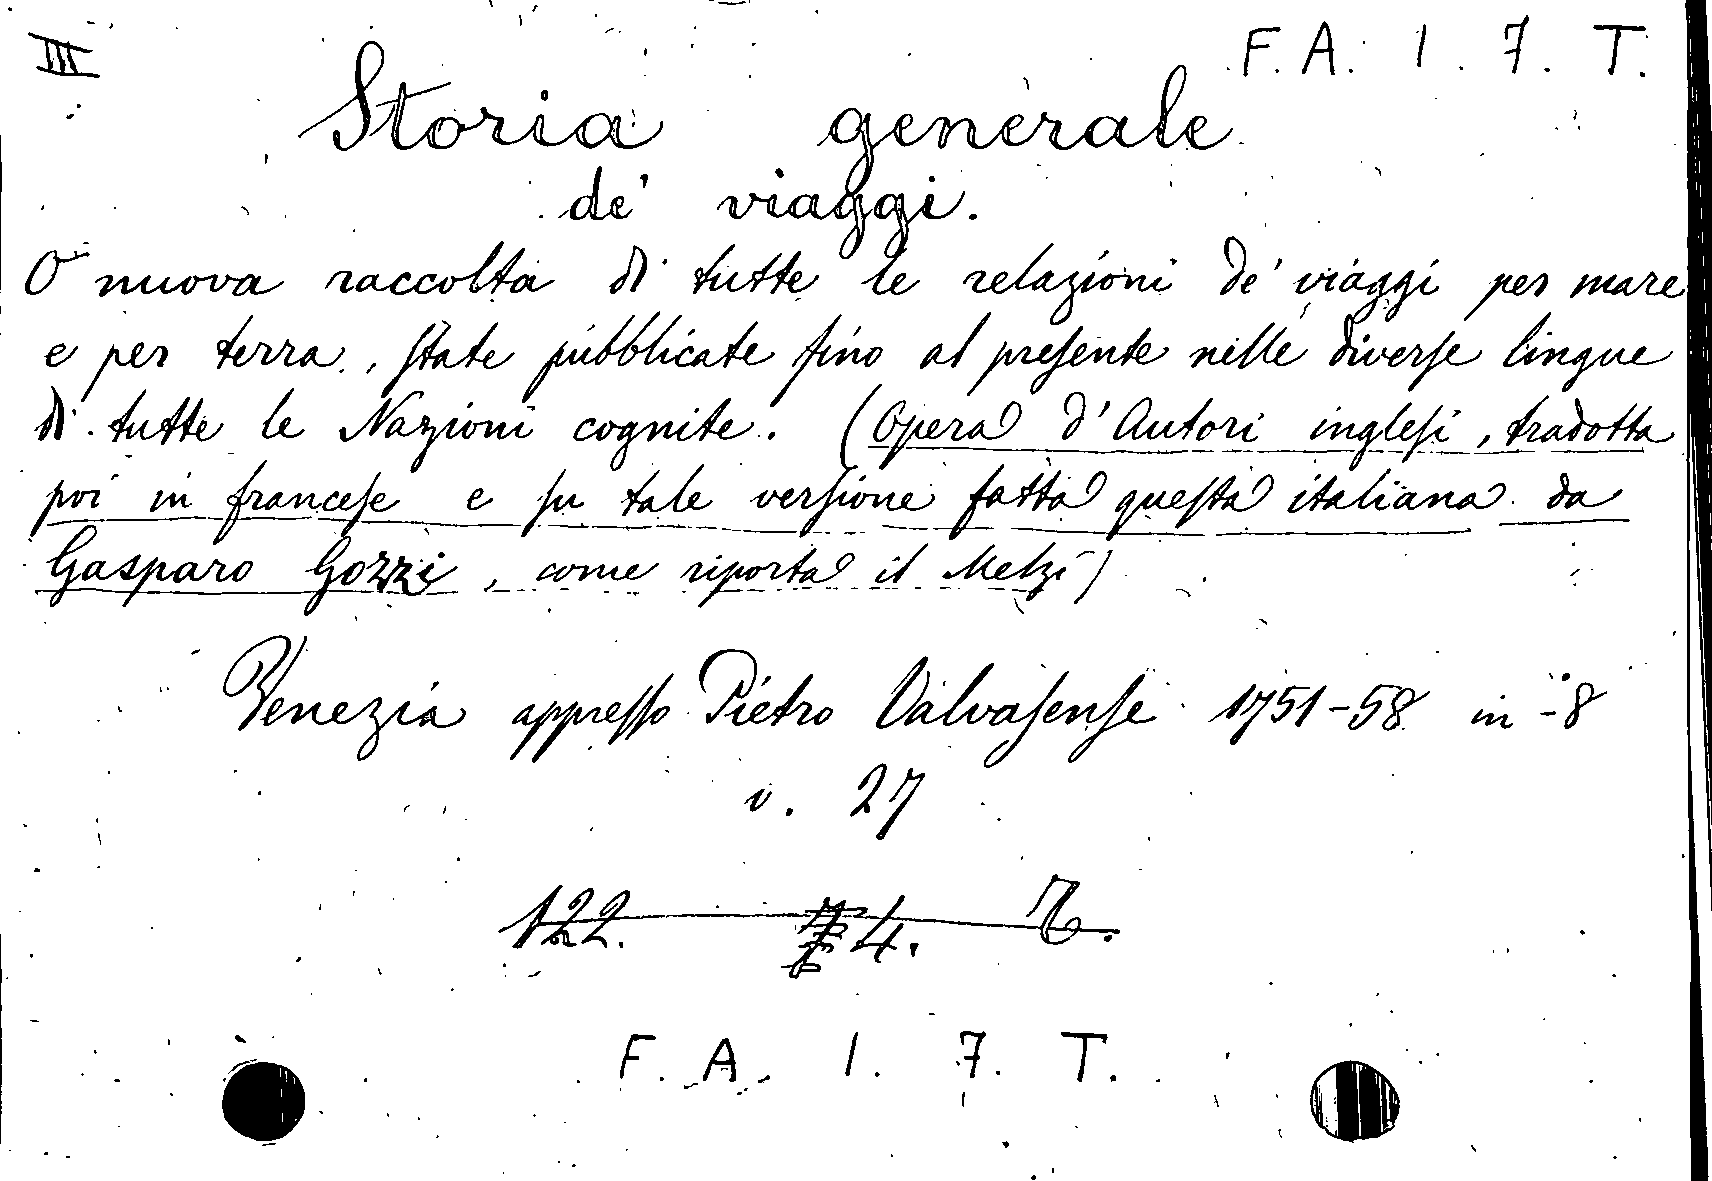 III F. A. 1. 7. T.
Storia generale
de' viaggi.
O nuova raccolta di tutte le relazioni de' viaggi per mare
e per terra, ſtate pubblicate fino al preſente nelle diverſe lingue
di tutte le Nazioni cognite. (Opera d'Autori ingleſi, tradotta
poi in franceſe e ſu tale verſione fatta queſta italiana da
Gasparo Gozzi, come riporta il Melzi)
Venezia appreſſo Pietro Valvaſenſe 1751-58 in-8
v. 27
122. 4.
F. A. 1. 7. T.